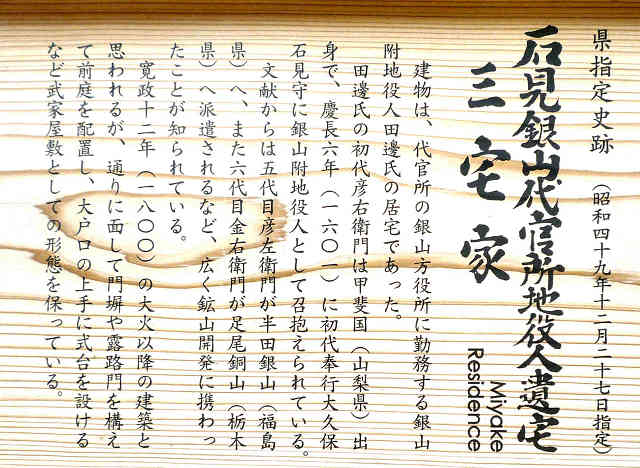 県指定史跡 （昭和四十九年十二月二十七日指定）
石見銀山代官所地役人遺宅
三宅家
Miyake
Residence
建物は、代官所の銀山方役所に勤務する銀山
附地役人田邊氏の居宅であった。
田邊氏の初代彦右衛門は甲斐国（山梨県）出
身で、慶長六年（一六〇一）に初代奉行大久保
石見守に銀山附地役人として召抱えられている。
文献からは五代目彦左衛門が半田銀山（福島
県）へ、また六代目金右衛門が足尾銅山（栃木
県）へ派遣されるなど、広く鉱山開発に携わっ
たことが知られている。
寛政十二年（一八〇〇）の大火以降の建築と
思われるが、通りに面して門塀や露路門を構え
て前庭を配置し、大戸口の上手に式台を設ける
など武家屋敷としての形態を保っている。